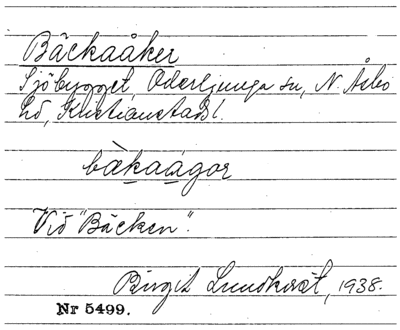 Bäckaåker
Sjöbygget, Oderljunga sn, N. Åsbo
hd, Kristianstads l.
bækaågor
Vid "Bäcken".
Birgit Lundkvist, 1938.
Nr 5499.